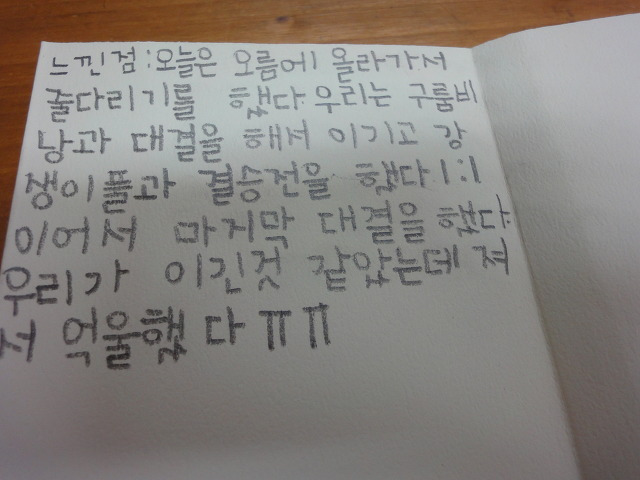 느낀점:오늘은 오름에 올라가서
줄다리기를 했다 우리는 구룸비
당과 대결을 해서 이기고 강
쟁이풀과 결승전을 했다 1:1
이어서 마지막 대결을 했다.
우리가 이긴것 같았는데 져
서 억울했다 ㅠㅠ